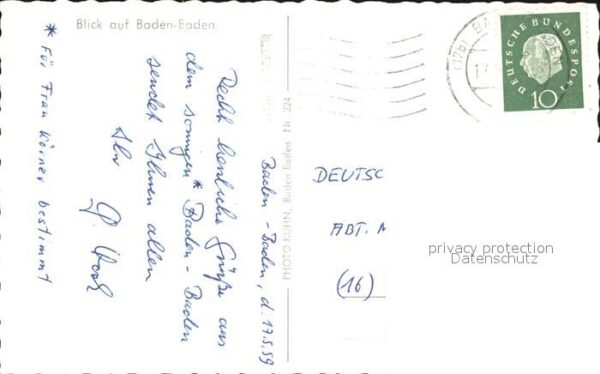 Blick auf Baden-Baden
Baden-Baden, d. 17.5.59
Recht herzliche Grüße aus
dem sonnigen * Baden-Baden
sendet Ihnen allen
Ihr
* Für Frau Körner bestimmt
PHOTO KÜHN, Baden-Baden Nr. 324
DEUTSCHE BUNDESPOST
10
DEUTSC
ABT.
(16)
privacy protection
Datenschutz